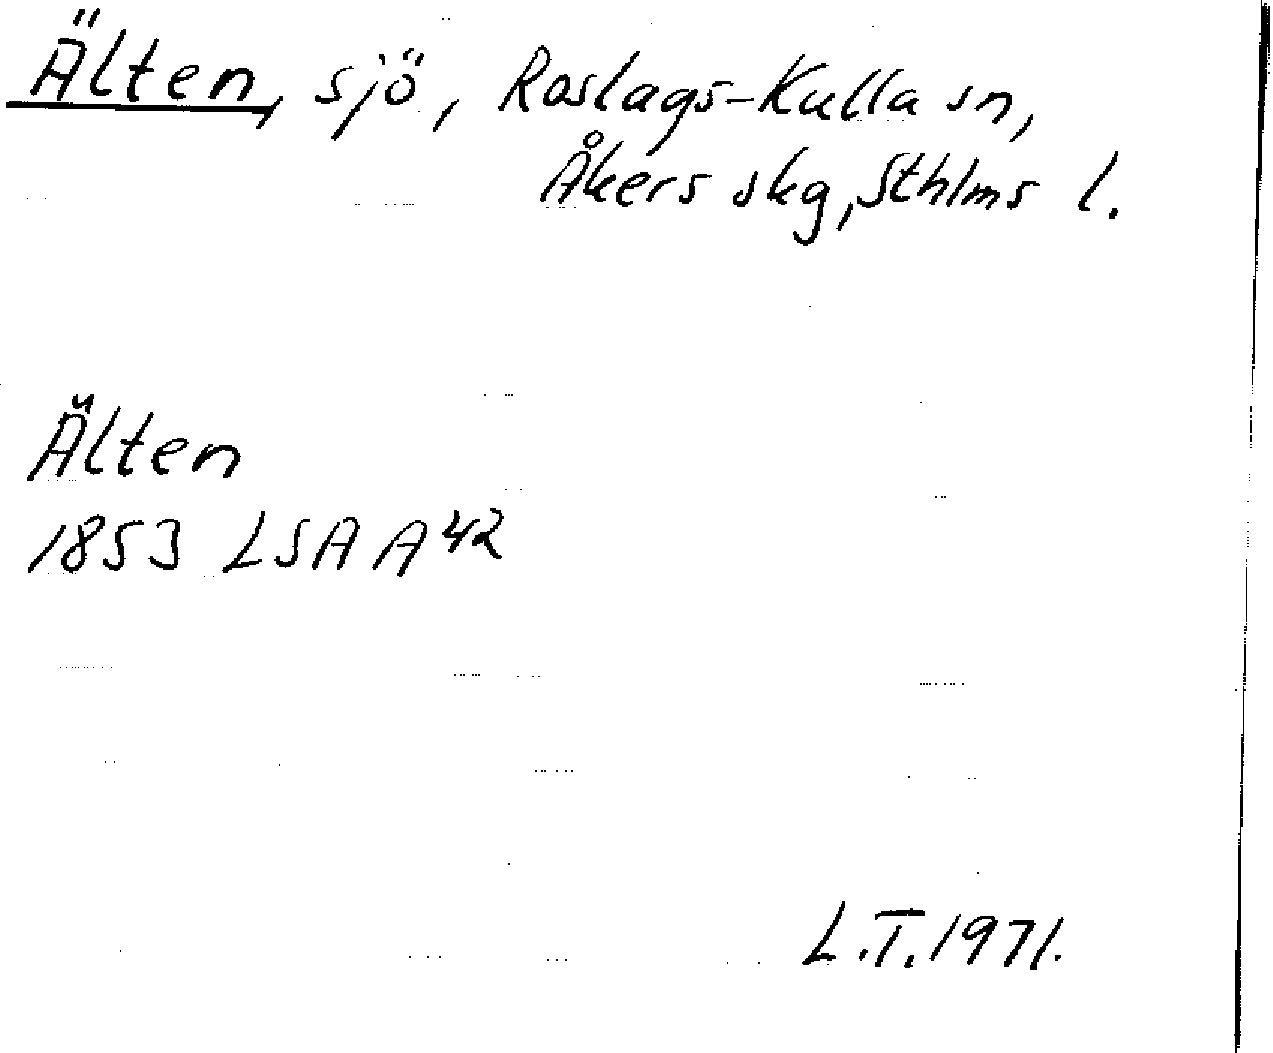 Älten, sjö, Roslags-Kulla sn,
Åkers skg, Sthlms l.
Älten
1853 LSA A 42
L.T. 1971.